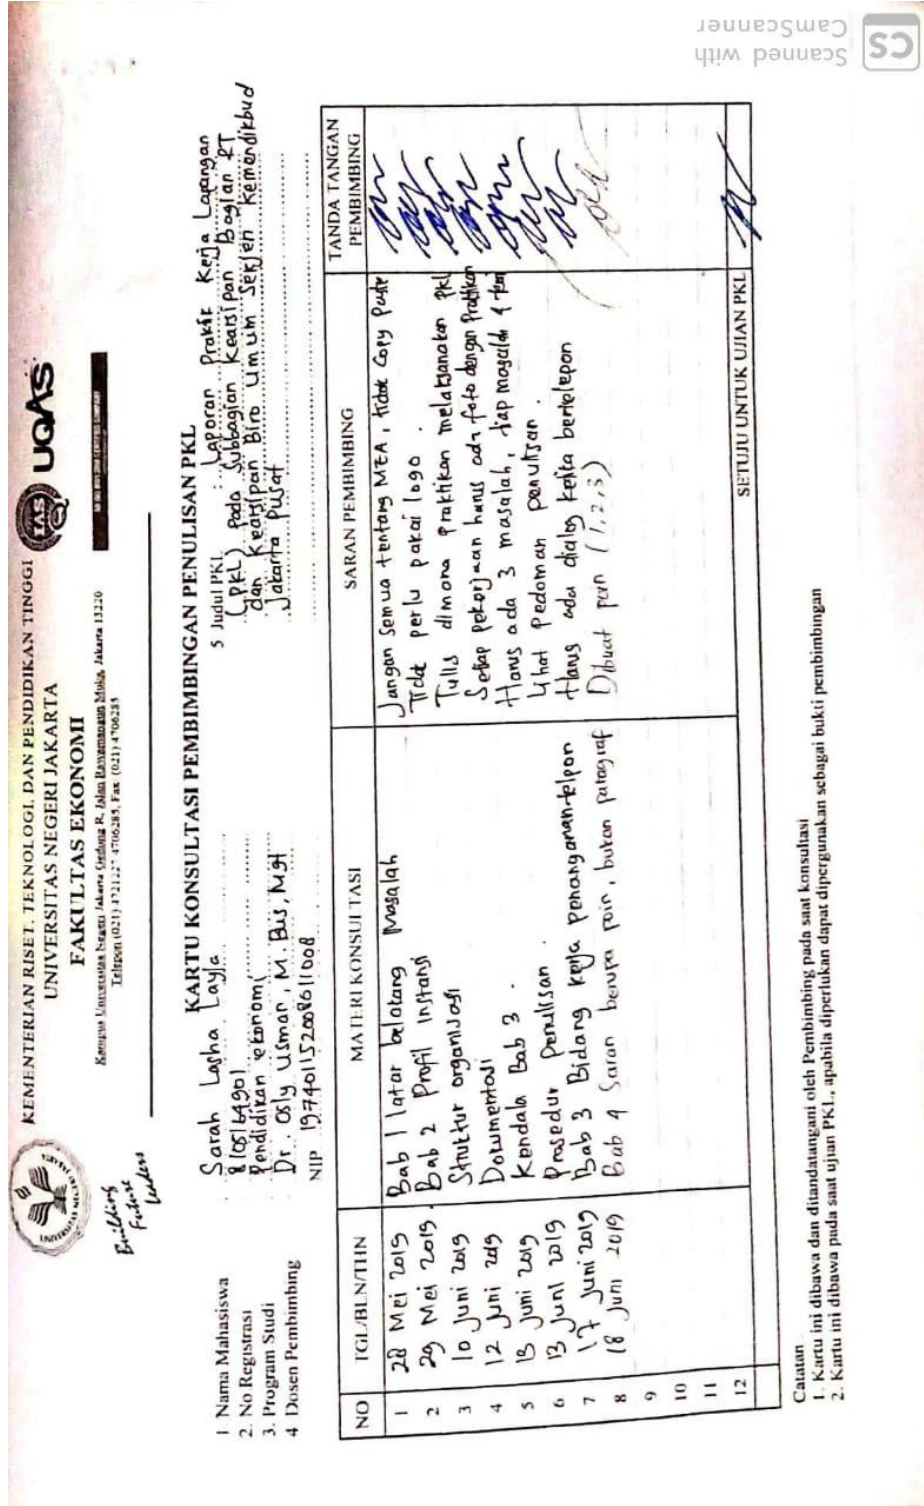 KEMENTERIAN RISET, TEKNOLOGI, DAN PENDIDIKAN TINGGI
UNIVERSITAS NEGERI JAKARTA
FAKULTAS EKONOMI
Kampus Universitas Negeri Jakarta Gedung R, Jalan Rawamangun Muka, Jakarta 13220
Telepon (021) 4721227 4706285, Fax: (021) 4706285
Building
Future
Leaders
UQAS
KARTU KONSULTASI PEMBIMBINGAN PENULISAN PKL
1 Nama Mahasiswa : Sarah Lasha Layla
2. No Registrasi : 8105164901
3. Program Studi : Pendidikan ekonomi
4 Dosen Pembimbing : Dr. Osly Usman, M. Bus, Mgt
NIP 197401152008011008
5 Judul PKL : Laporan Praktik Kerja Lapangan
(PKL) Pada Subbagian Kearsipan Bagian RT
dan Kearsipan Biro Umum Sekjen Kemendikbud
Jakarta Pusat
NO TGL/BLN/THN MATERI KONSULTASI SARAN PEMBIMBING TANDA TANGAN PEMBIMBING
1 28 Mei 2019 Bab 1 latar belakang Masalah Jangan semua tentang MEA, tidak Copy Paste
2 29 Mei 2019 Bab 2 Profil instansi Tidak perlu pakai logo.
3 10 Juni 2019 Struktur organisasi Tulis dimana praktikan melaksanakan PKL
4 12 Juni 2019 Dokumentasi Setiap pekerjaan harus ada foto dengan Praktikan
5 13 Juni 2019 Kendala Bab 3. Harus ada 3 masalah, tiap masalah 4 teori
6 13 Juni 2019 Prosedur Penulisan Lihat Pedoman penulisan.
7 17 Juni 2019 Bab 3 Bidang kerja penanganan telpon Harus ada dialog ketika bertelepon
8 18 Juni 2019 Bab 4 Saran berupa poin, bukan paragraf Dibuat poin (1,2,3)
9
10
11
12
SETUJU UNTUK UJIAN PKL
Catatan
1. Kartu ini dibawa dan ditandatangani oleh Pembimbing pada saat konsultasi
2. Kartu ini dibawa pada saat ujian PKL, apabila diperlukan dapat dipergunakan sebagai bukti pembimbingan
CS
Scanned with
CamScanner